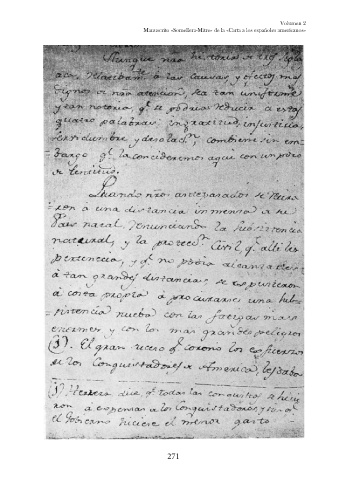 Volumen 2
Manuscrito «Somellera-Mitre» de la «Carta a los españoles americanos»
Aunque nra historia de tres siglos
aca, relativam.te à las causas, y efectos mas
dignos de nra atencion, sea tan uniforme
y tan notoria, q.e se podria reducir a estas
quatro palabras: ingratitud, injusticia,
servidumbre, y desolac.n, combiene sin em-
bargo q.e la concideremos aqui con un poco
de lentitud.
Quando nros antepasados se retira-
ron à una distancia inmensa de su
Pais natal, renunciando la subsistencia
natural, y la protecc.n Civil, q.e alli les
pertenecia, y q.e no podia alcansarles
à tan grandes distancias, se expusieron
à costa propia à procurarse una subs-
sistencia nueba con las fatigas mas
enormes y con los mas grandes peligros
(1). El gran suceso q.e coronó los esfuerzos
de los Conquistadores de America, les daba
(1) Herrera dice, q.e todas las conquistas se hicie-
ron a expensas de los Conquistadores, y sin q.e
el gobierno hiciere el menor gasto
271